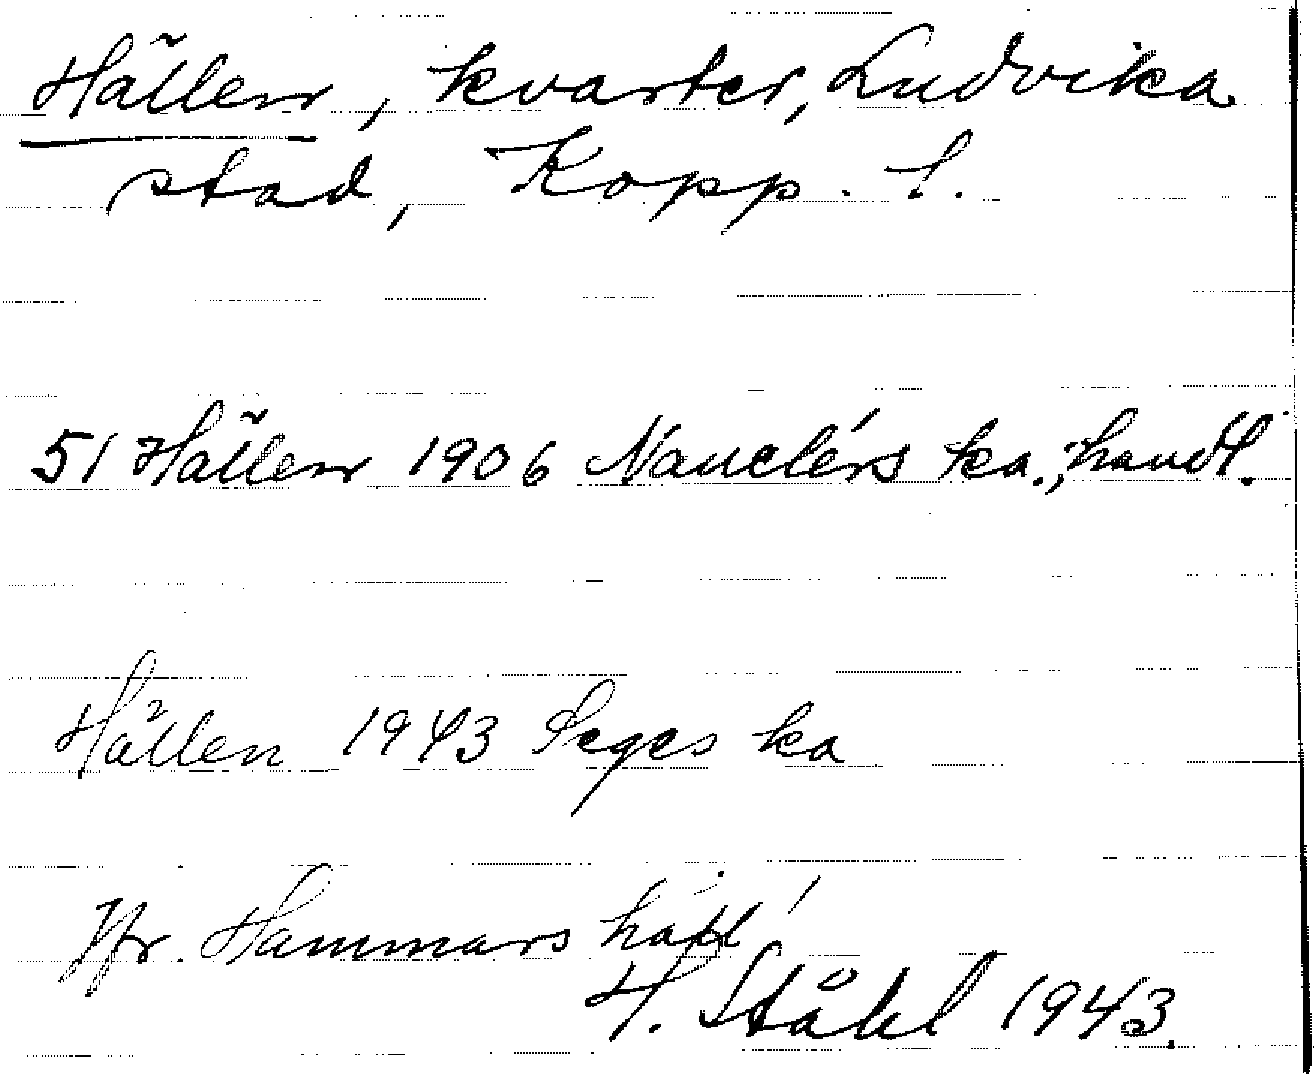 Hällen, kvarter, Ludvika
stad, Kopp. l.
51 Hällen 1906 Nauclérs ka., handl.
Hällen 1943 Seges ka
Jfr. Hammars häll
H. Ståhl 1943.